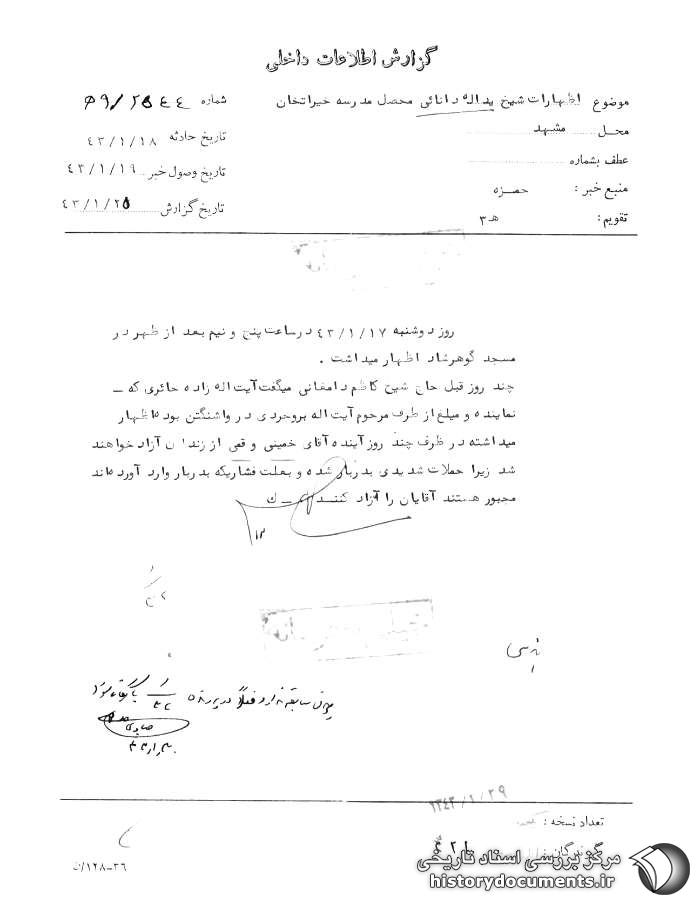 گزارش اطلاعات داخلی
موضوع اظهارات شیخ یداله دانائی محصل مدرسه خیراتخان
شماره ۹۵/۲۵٤٤
محل مشهد
تاریخ حادثه ٤۳/۱/۱۸
عطف بشماره
تاریخ وصول خبر ٤۳/۱/۱۹
منبع خبر : حمزه
تاریخ گزارش ٤۳/۱/۲۵
تقویم : هـ ۳
روز دوشنبه ٤۳/۱/۱۷ در ساعت پنج و نیم بعد از ظهر در
مسجد گوهرشاد اظهار میداشت .
چند روز قبل حاج شیخ کاظم دامغانی میگفت آیت اله زاده حائری که ـ
نماینده و مبلغ از طرف مرحوم آیت اله بروجردی در واشنگتن بوده اظهار
میداشته در ظرف چند روز آینده آقای خمینی و قمی از زندان آزاد خواهند
شد زیرا حملات شدیدی بدربار شده و بعلت فشاریکه بدربار وارد آورده اند
مجبور هستند آقایان را آزاد کنند ـ ك
۱۳٤۳/۱/۲۹
تعداد نسخه :
٤۲۱
مرکز بررسی اسناد تاریخی
historydocuments.ir
۳۶-۱۲۸/ن